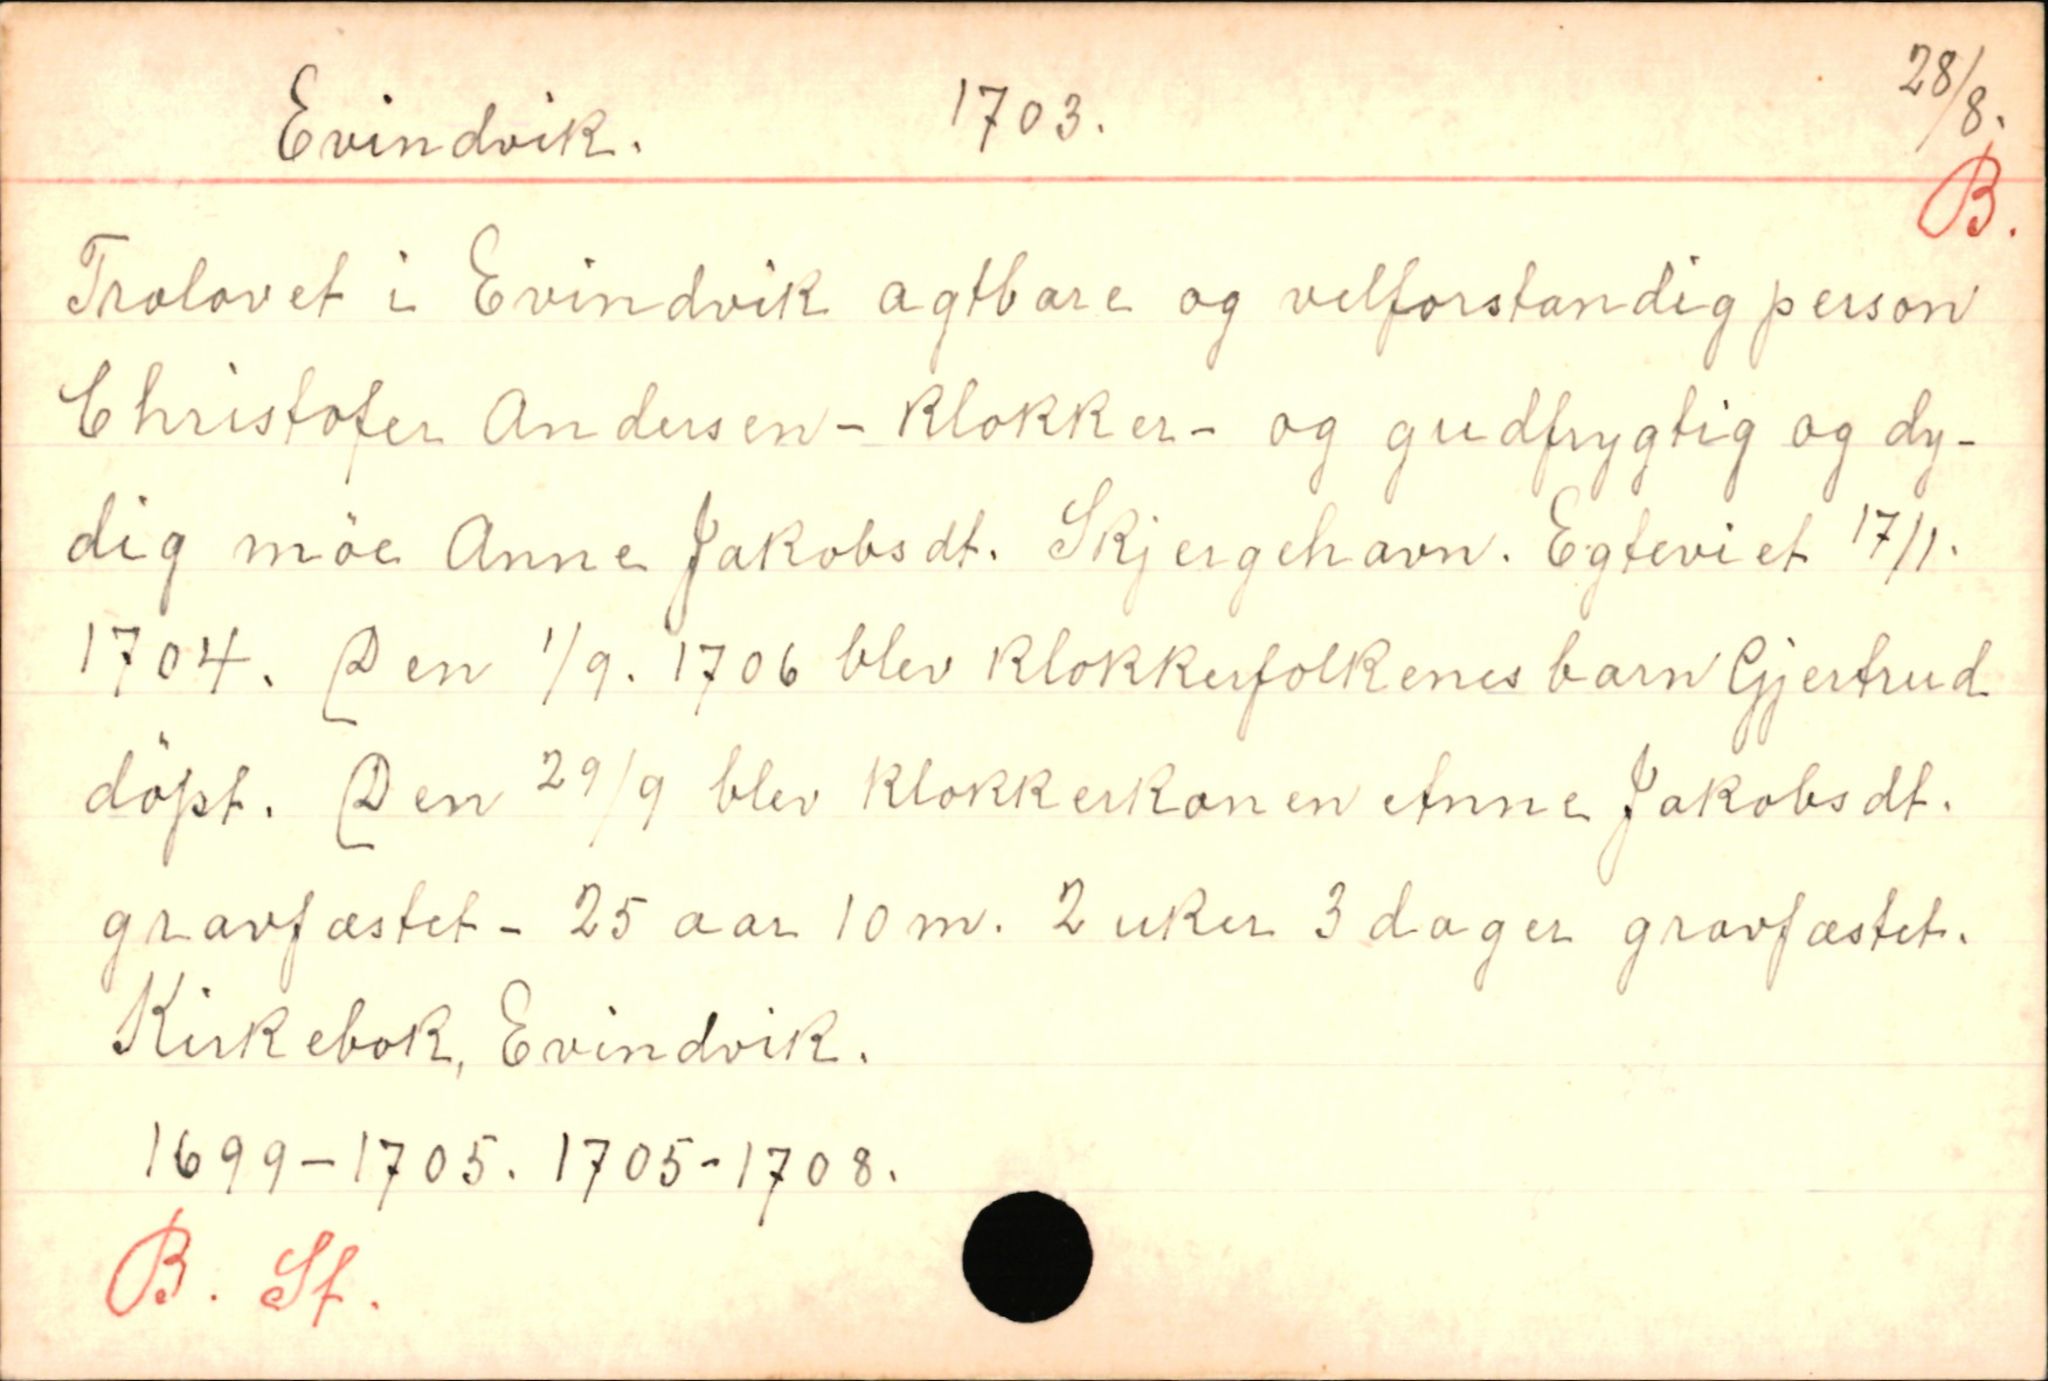 Evindvik. 1703. 28/8.
B.
Trolovet i Evindvik agtbare og velforstandig person
Christofer Andersen - klokker - og gudfrygtig og dy-
dig möe Anne Jakobsdt. Skjergehavn. Egteviet 17/1.
1704. Den 1/9. 1706 blev klokkerfolkenes barn Gjertrud
döpt. Den 29/9 blev klokkerkonen Anne Jakobsdt.
gravfæstet - 25 aar 10 m. 2 uker 3 dager gravfæstet.
Kirkebok, Evindvik.
1699-1705. 1705-1708.
B. Sf.